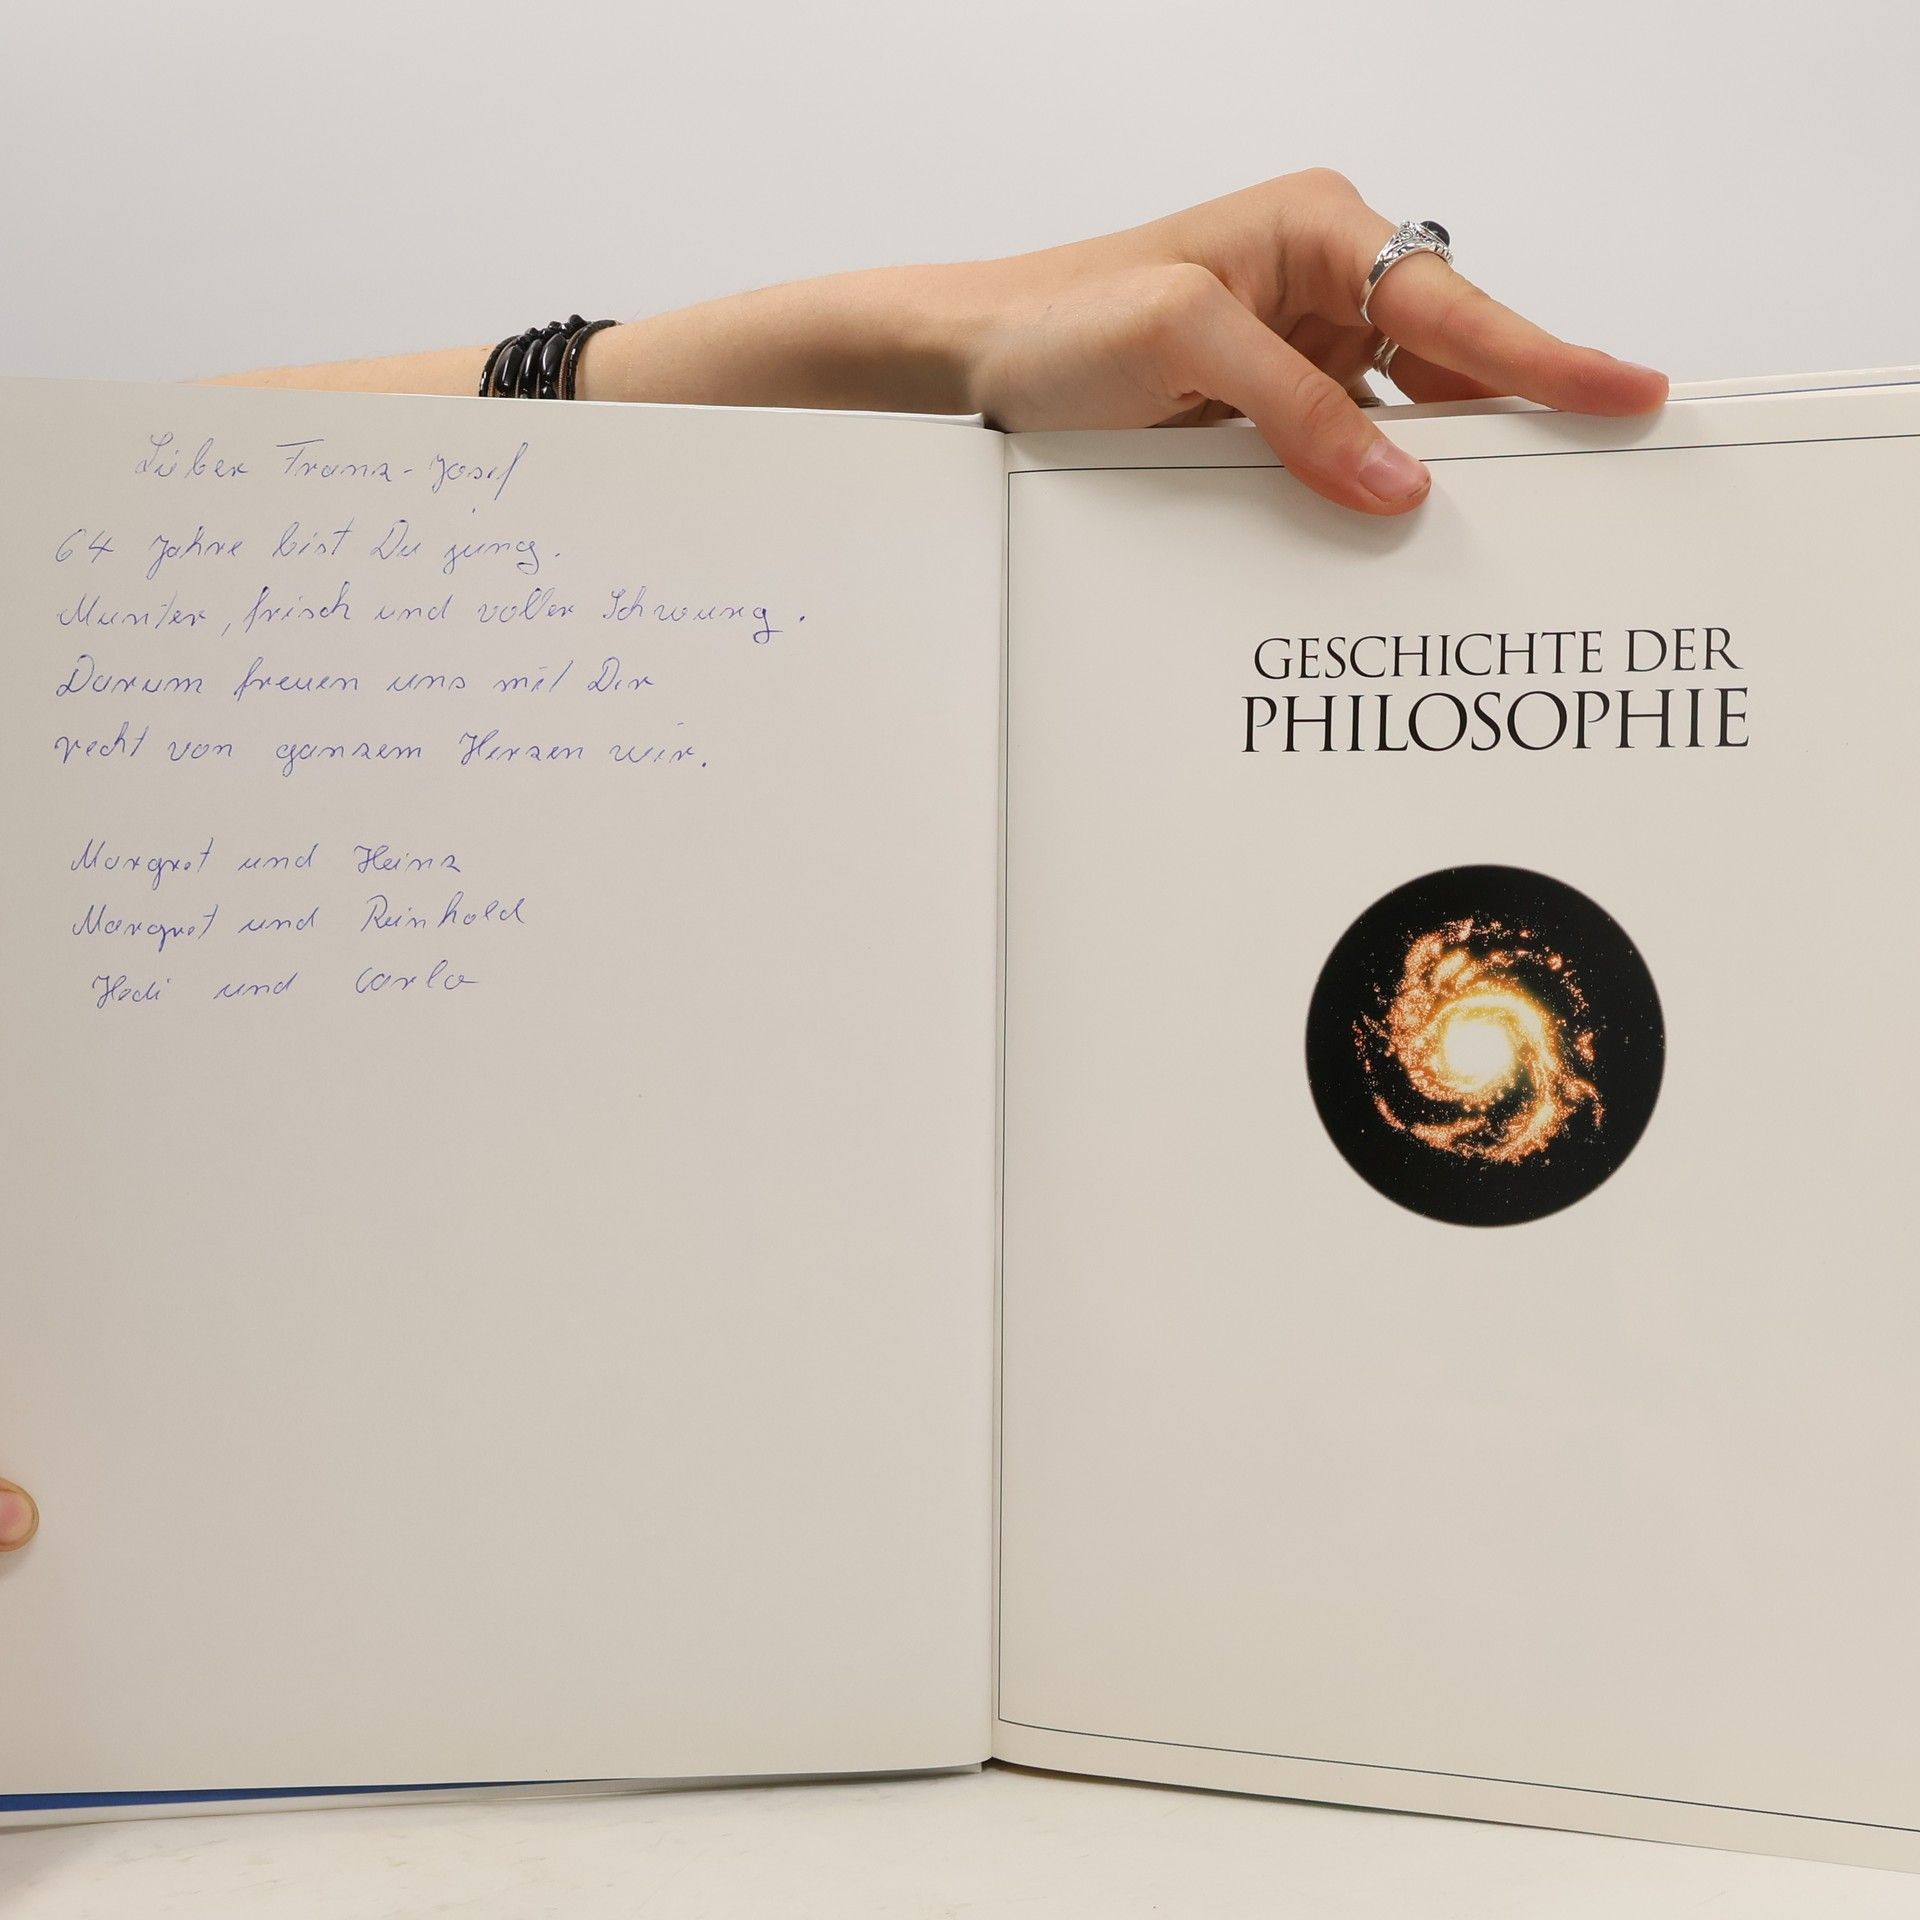 Lieber Franz-Josef
64 Jahre bist Du jung.
Munter, frisch und voller Schwung.
Darum freuen uns mit Dir
recht von ganzem Herzen wir.
Margret und Heinz
Margret und Reinhold
Hedi und Carlo
GESCHICHTE DER
PHILOSOPHIE